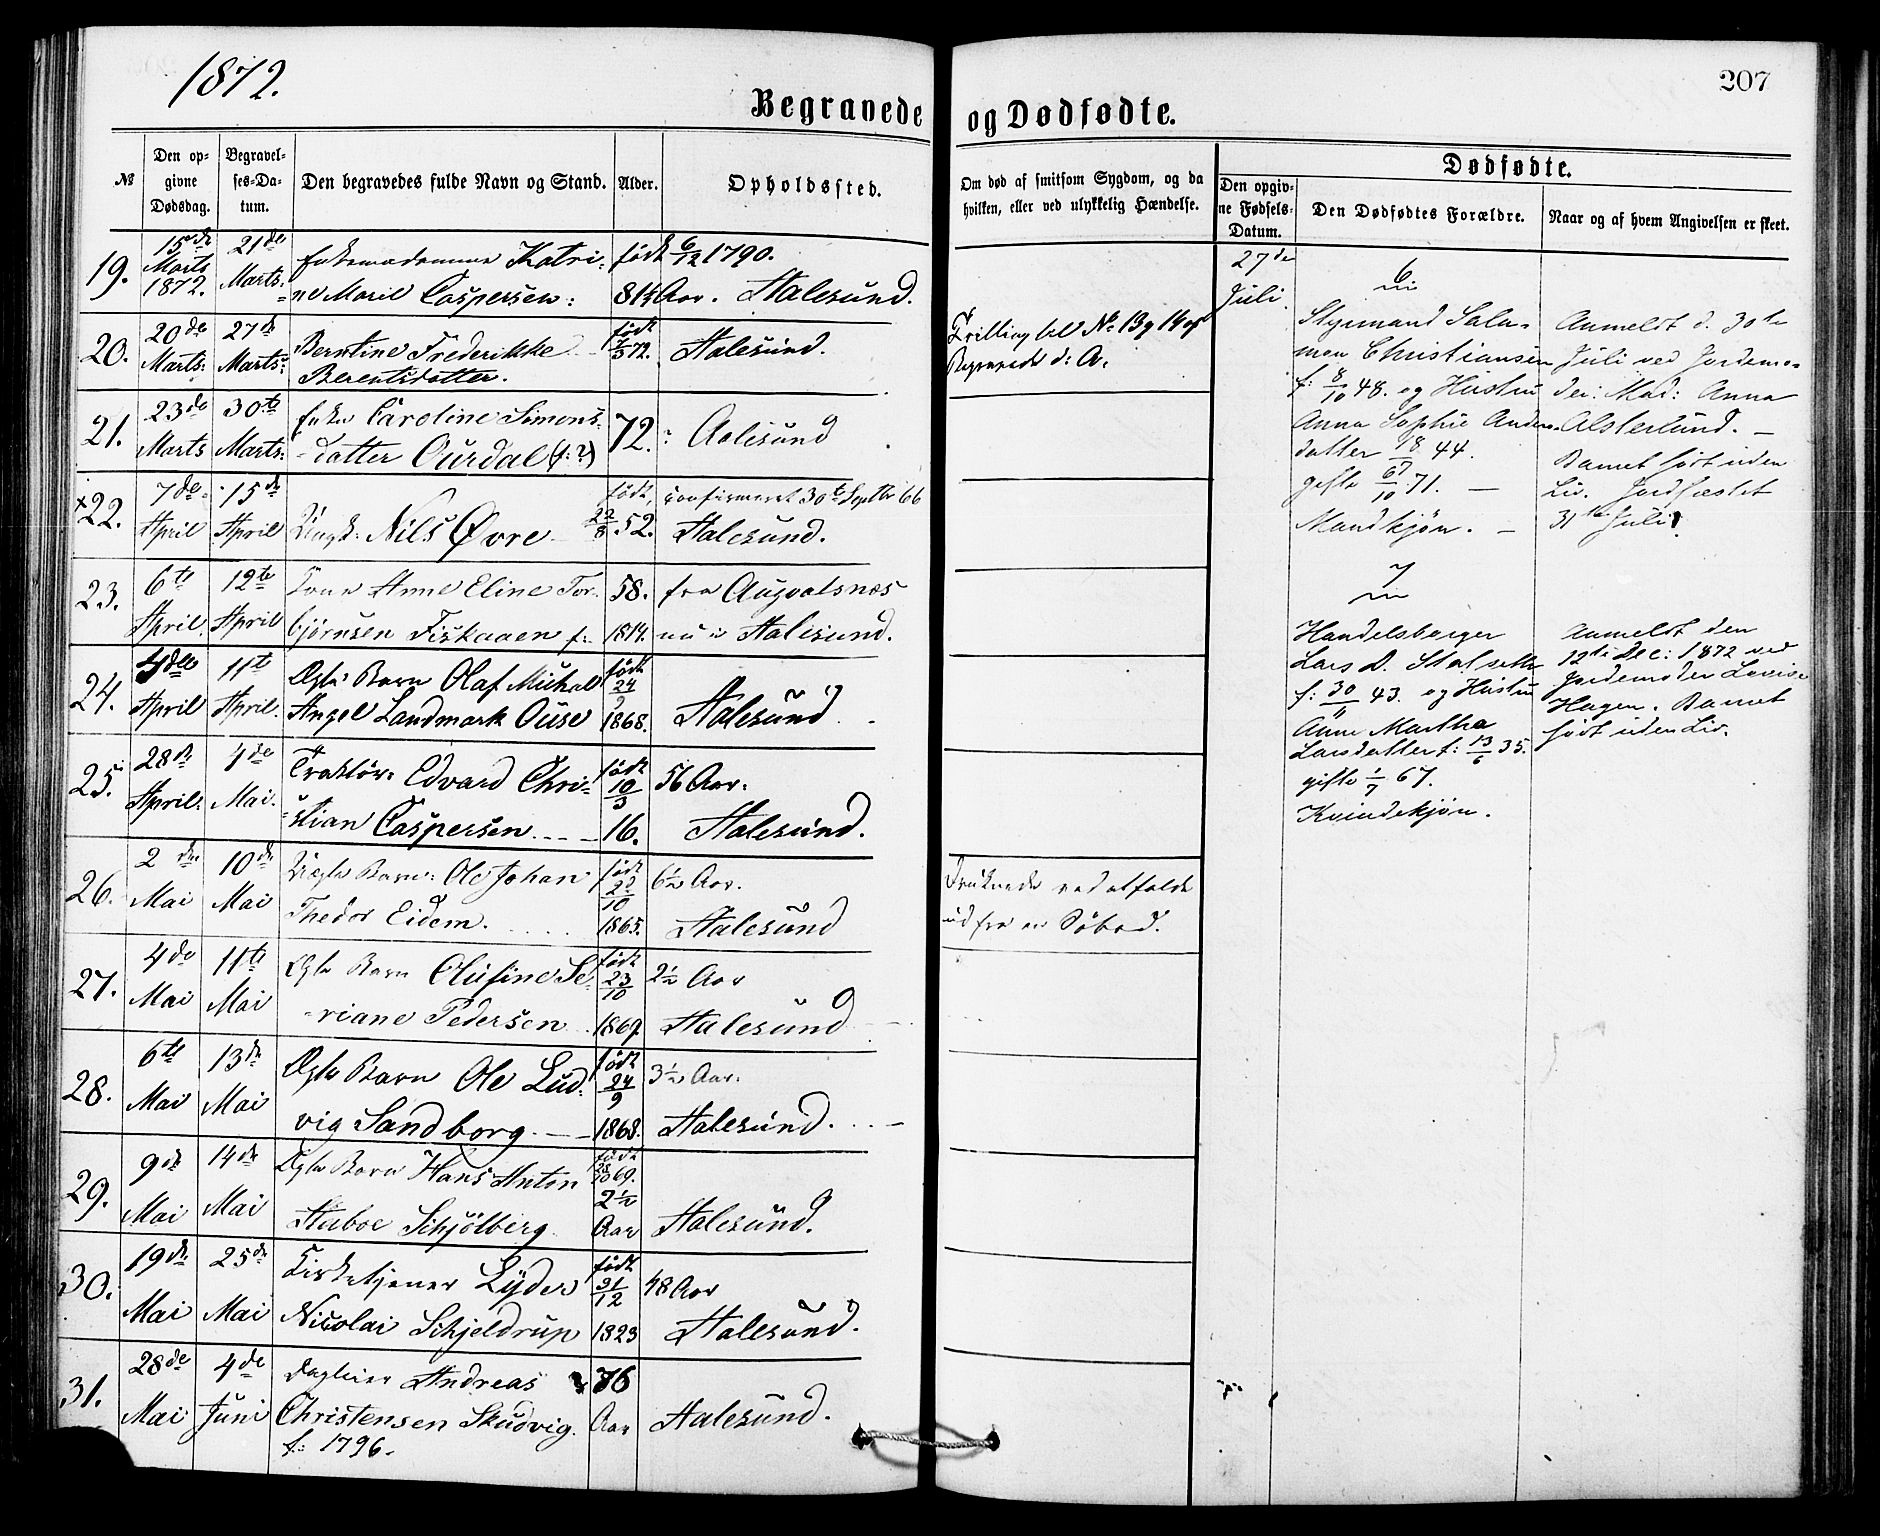 1872.
207
Begravede og Dødfødte.
№
Den opgivne Dødsdag.
Begravelses-Datum.
Den begravedes fulde Navn og Stand.
Alder.
Opholdssted.
Om død af smitsom Sygdom, og da hvilken, eller ved ulykkelig Hændelse.
Dødfødte.
Den opgivne Fødsels-Datum.
Den Dødfødtes Forældre.
Naar og af hvem Angivelsen er skeet.
19. 15de Marts 1872. 21de Marts. Enkemadamme Katri-
ne Marie Caspersen: født 6/12 1790.
81½ Aar. Aalesund.
20. 20de Marts: 27de Marts: Berntine Frederikke
Berentsdatter. født 7/3 72. Aalesund.
Trilling til No 13 og 14 af
Begravede d: A.
21. 23de Marts 30te Marts: Enke Caroline Simons-
datter Ourdal (f: ?) 72. Aalesund
+22. 7de April 15de April Ungk: Nils Øvre født 22/8 52. confirmeret 30te Septbr 66
Aalesund.
23. 6te April. 12te April Kone Anne Eline Tor-
bjørnsen Fiskaaen f: 58. 1814. fra Augvalsnæs
nu i Aalesund.
24. 4de April 11te April. Ægte Barn Olaf Michal
Angel Landmark Ouse født 24/9 1868. Aalesund
25. 28de April. 4de Mai. Traktør: Edvard Chri-
stian Caspersen født 10/3 16. 56 Aar.
Aalesund.
26. 2den Mai 10de Mai Uægte Barn: Ole Johan
Thedor Eidem. født 2/10 1865. 6½ Aar.
Aalesund
Druknede ved at falde
ud fra en Søbod.
27. 4de Mai 11te Mai Ægte Barn Olufine Se-
riane Pedersen født 23/10 1869. 2½ Aar
Aalesund
28. 6te Mai 13de Mai Ægte Barn Ole Lud-
vig Sandborg. født 24/9 1868. 3½ Aar.
Aalesund.
29. 9de Mai 14de Mai Ægte Barn Hans Anton
Aaboe Schjölberg født 28/10 69.
2½ Aar Aalesund.
30. 19de Mai 25de Mai Kirketjener Lyder
Nicolai Schjeldrup født 31/12 1823 48 Aar
Aalesund.
31. 28de Mai 4de Juni Daglejer Andreas
Christensen Skudvig.
f: 1796. 76 Aar Aalesund.
27de Juli.
6
Styrmand Sala-
mon Christiansen
f: 8/10 48. og Hustru
Anna Sophie Anders-
datter 44.
gifte 71.
Mandkjøn.
Anmeldt d. 30te
Juli ved Jordemo-
der: Mad: Anna
Alsterlund.
Barnet født uden
Liv. Jordfæstet
31te Juli.
7
Handelsborger
Lars D. Stolseth
f: 30/11 43. og Hustru
Anne Martha
Larsdatter f: 13/6 35.
gifte 1/7 67.
Kvindekjøn.
Anmeldt den
12te Dec: 1872 ved
Jordemoder Lovise
Hagen. Barnet
født uden Liv.